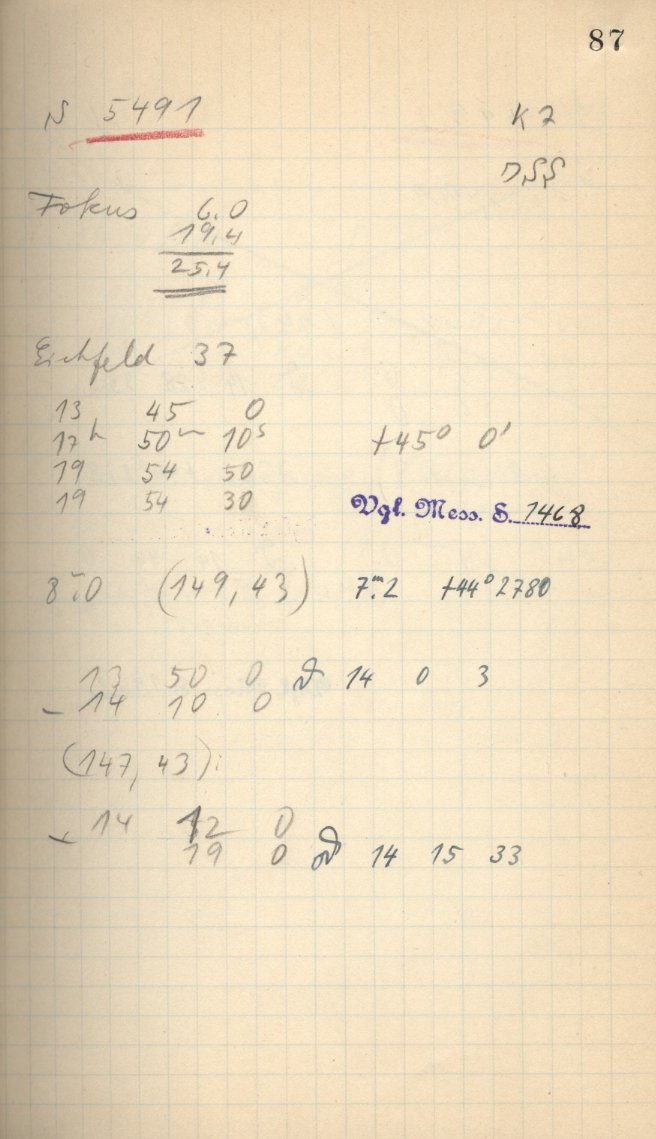 87
N 5491
K 7
DSS
Fokus 6.0
19.4
25.4
Eichfeld 37
13 45 0
17h 50m 10s +45° 0'
19 54 50
19 54 30
Vgl. Mess. S. 1468
8m.0 (149, 43) 7m.2 +44° 2780
13 50 0 14 0 3
– 14 10 0
(147, 43):
14 12 0
19 0 14 15 33